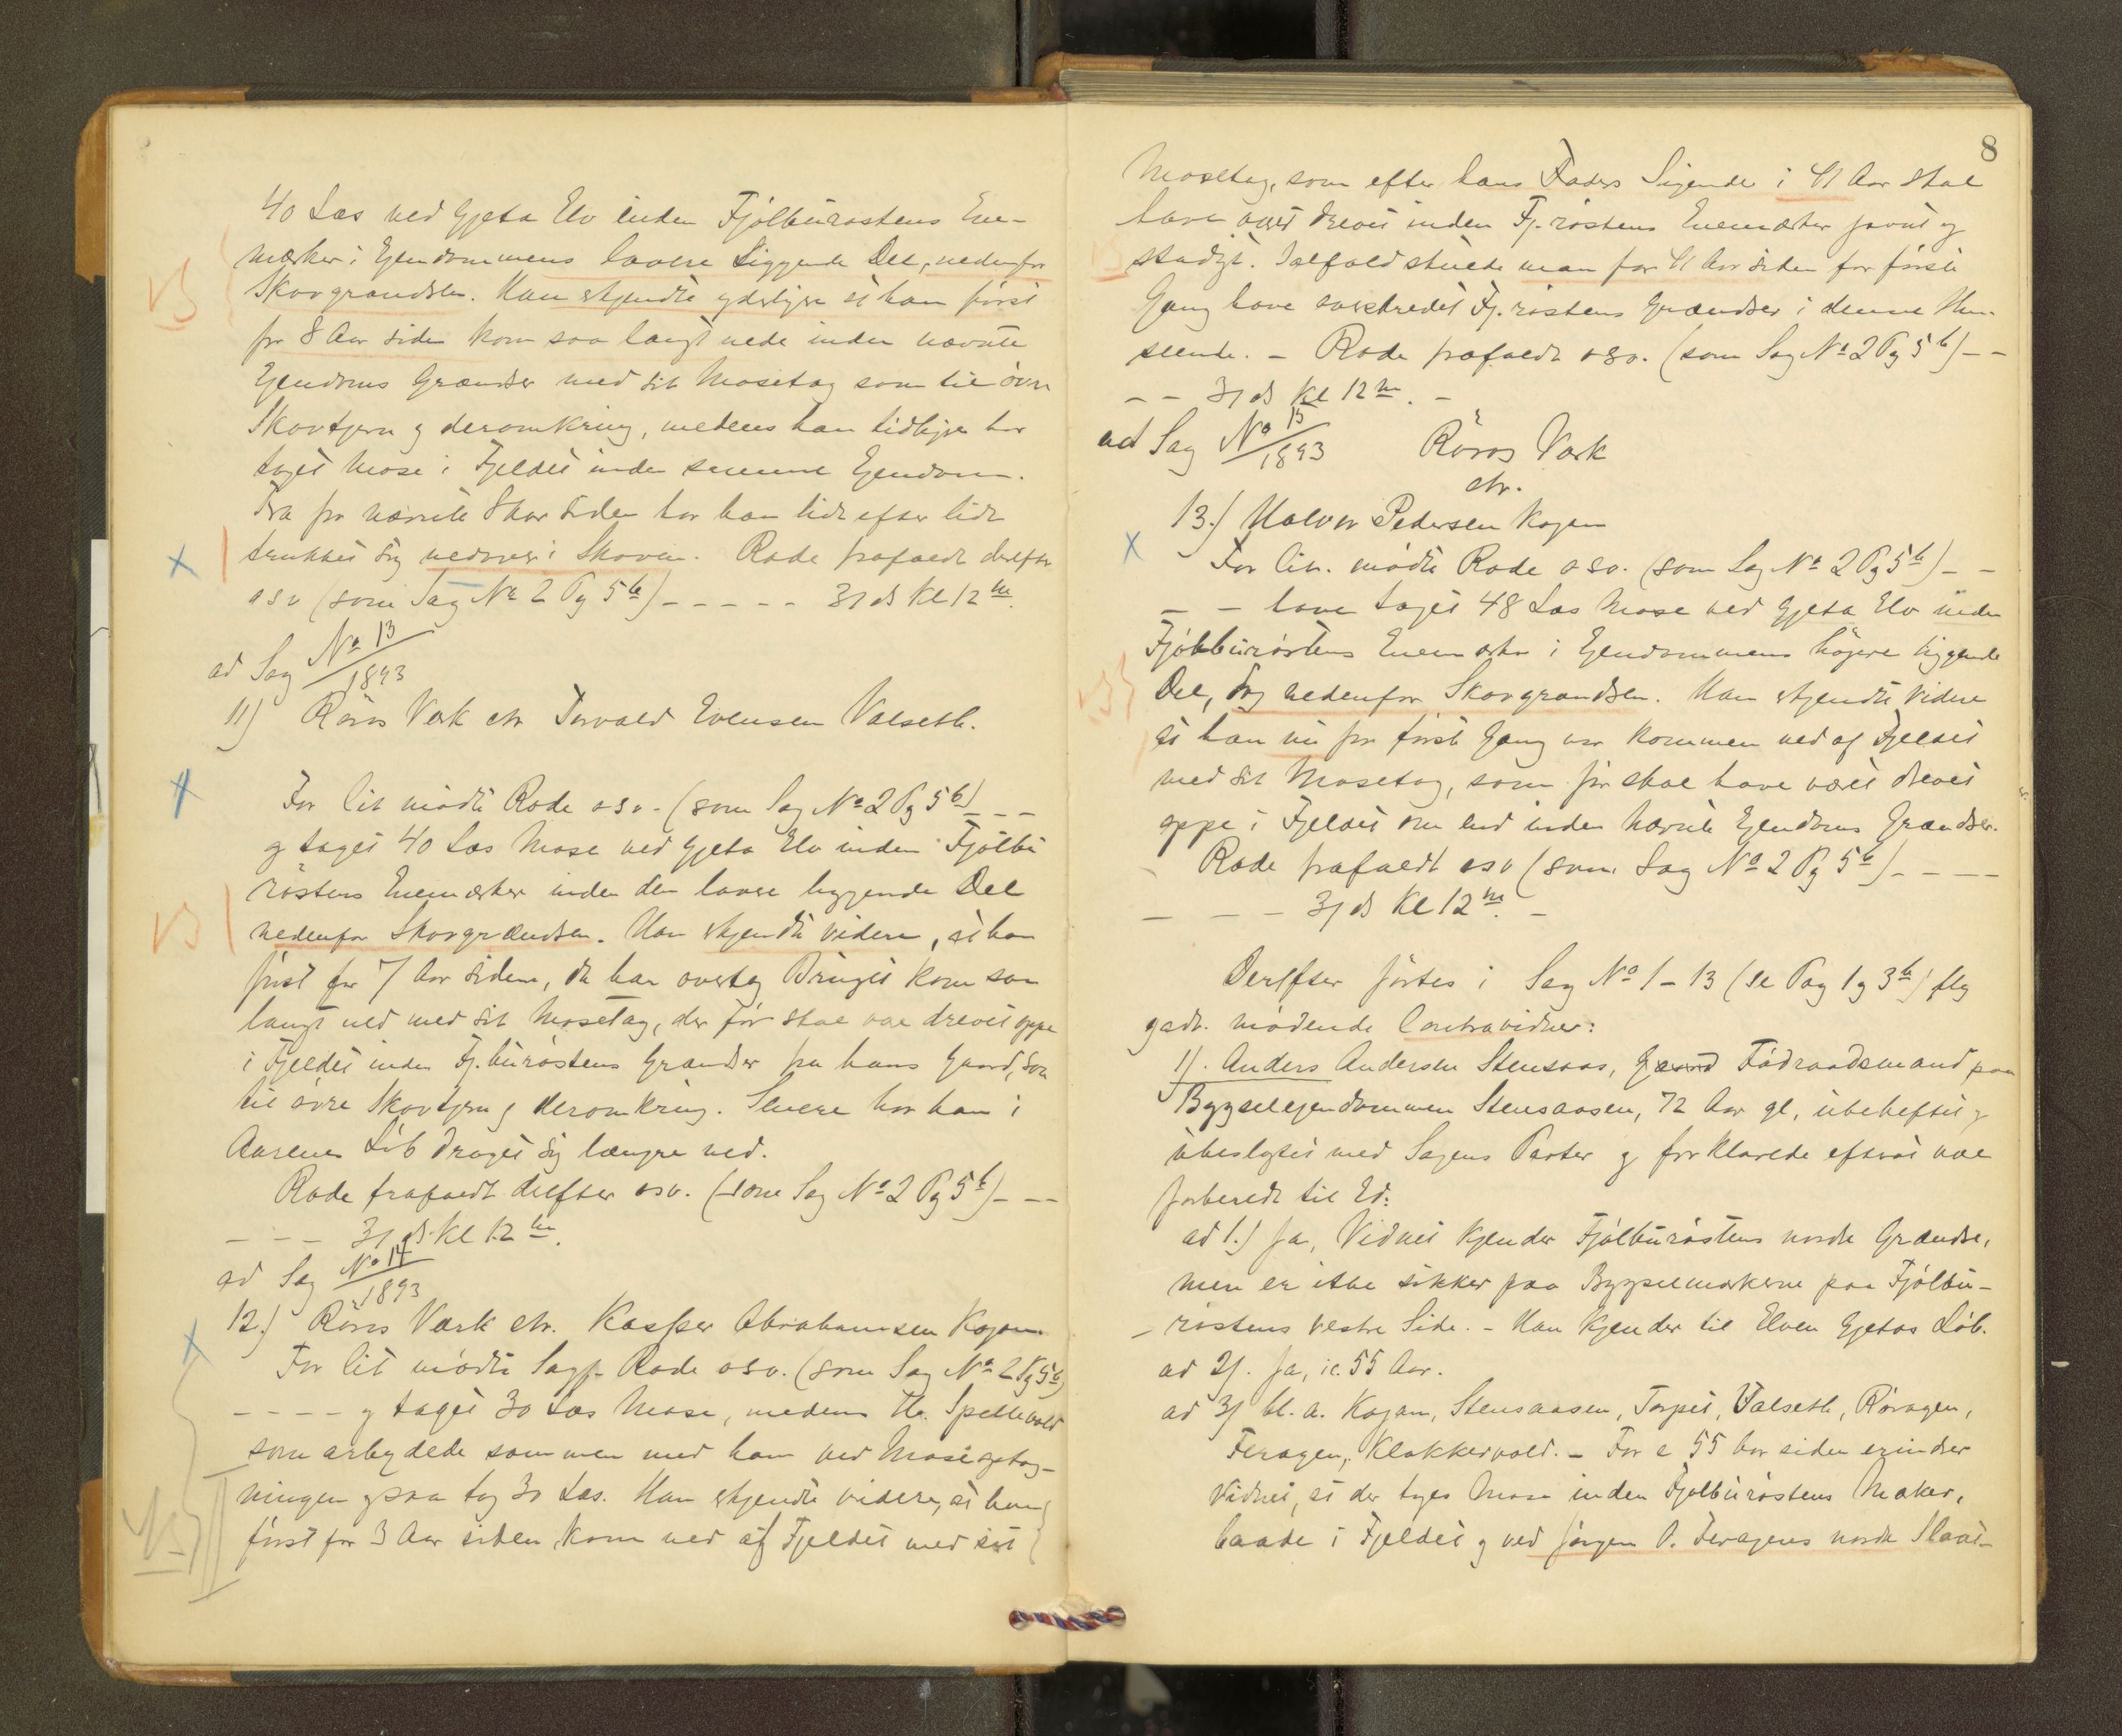 40 Læs ved Gjeta Elv inden Fjölburöstens Ene-
mærker i Ejendommens lavere Liggende Del, nedenfor
Skovgrændsen. Han erkjendte yderligere at han först
for 8 Aar siden kom saa langt nede inden nævnte
Ejendoms Grændser med sit Mosetag som til övre
Skovtjern og deromkring, medens han tidligere har
taget Mose i Fjeldet inden samme Ejendom.
Fra for nævnte 8 Aar siden har han lidt efter lidt
trukket sig nedover i Skoven. Rode frafaldt derefter
osv (som Sag No 2 Pg 5b) - - - - - 3/ ds Kl 12 m.
ad Sag No 13/1893
11) Röros Værk ctr Torvald Evensen Valseth.
For Cit mödte Rode osv. (som Sag No 2 Pg 5b) - - -
og taget 40 Læs Mose ved Gjeta Elv inden Fjölbu
röstens Enemærker inden den lavere liggende Del
nedenfor Skovgrændsen. Han erkjendte videre, at han
först for 7 Aar siden, da han overtog Bruget kom saa
langt ned med sit Mosetag, der för skal være drevet oppe
i Fjeldet inden Fj.buröstens Grændser fra hans Gaard, som
til övre Skovtjern og deromkring. Senere har han i
Aarenes Löb draget sig længre ned.
Rode frafaldt derefter osv. (som Sag No 2 Pg 5b) - - -
- - - 3/ ds. Kl 12 m.
ad Sag No 14/1893
12.) Röros Værk ctr. Kasper Abrahamsen Kojan
For Cit mödte Sagf. Rode osv. (som Sag No 2 Pg 5b)
- - - - og taget 30 Læs Mose, medens Th. Spellevold
som arbejdede sammen med ham ved Moseoptag-
ningen ogsaa tog 30 Læs. Han erkjendte videre, at han
först for 3 Aar siden kom ned af Fjeldet med sit
8
Mosetag, som efter hans Faders Sigende i 41 Aar skal
have været drevet inden Fj. röstens Enemærker jevnt og
stadigt. Ialfald skulde man for 41 Aar siden for förste
Gang have overtredet Fj. röstens Grændser i denne Hen-
seende. - Rode frafaldt osv. (som Sag No 2 Pg 5b) - -
- - 3/ ds Kl 12 m. -
ad Sag No 15/1893 Röros Værk
ctr.
13.) Halvor Pedersen Kojan
For Cit. mödte Rode osv. (som Sag No 2 Pg 5b) - -
- - have taget 48 Læs Mose ved Gjeta Elv inden
Fjölburöstens Enemærker i Ejendommens höjere liggende
Del, dog nedenfor Skovgrændsen. Han erkjendte videre
at han nu for förste Gang var kommen ned af Fjeldet
med sit Mosetag, som för skal have været drevet
oppe i Fjeldet om end inden nævnte Ejendoms Grændser.
Rode frafaldt osv (som Sag No 2 Pg 5b) - - - -
- - - 3/ ds Kl 12 m. -
Derefter förtes i Sag No 1 - 13 (se Pag 1 og 3b) flg
godv. mödende Contravidner:
1). Anders Andersen Stensaas, Födraadsmand paa
Bygselejendommen Stensaasen, 72 Aar gl, ubeheftet og
ubeslægtet med Sagens Parter og forklarede efterat være
forberedt til Ed:
ad 1.) Ja, Vidnet kjender Fjölburöstens nordre Grændse,
men er ikke sikker paa Bygselmerkerne paa Fjölbu-
- röstens vestre Side. - Han kjender til Elven Gjetas Löb.
ad 2). Ja, i c. 55 Aar.
ad 3) bl. a. Kojan, Stensaasen, Torpet, Valseth, Rövagen,
Feragen, Klokkervold. - For c 55 Aar siden erindrer
Vidnet, at der toges Mose inden Fjölburöstens Mærker,
baade i Fjeldet og ved Jörgen O. Feragens nordre Slaat-